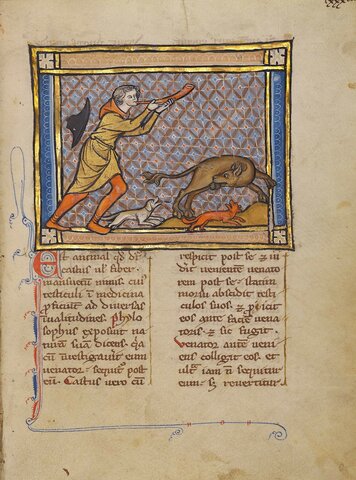 Est animal qd di
castus ul' fiber.
mansuetum nimis. cui
testiculi i medicina
pficiunt ad diversas
ualitudines. Phylo
sophus exposuit na
turam sua dicens. qa
cu inuestigauit eum
uenator. sequit post
eu. Castus uero cu
respicit post se & ui
dit uenientē uenato
rem post se. statim
morsu abscidit testi
culos suos. & picit
eos ante faciē uena
toris. & sic fugit.
Venator autē ueni
ens colligit eos. et
ult' iam ñ sequitur
eum. s; reuertitur